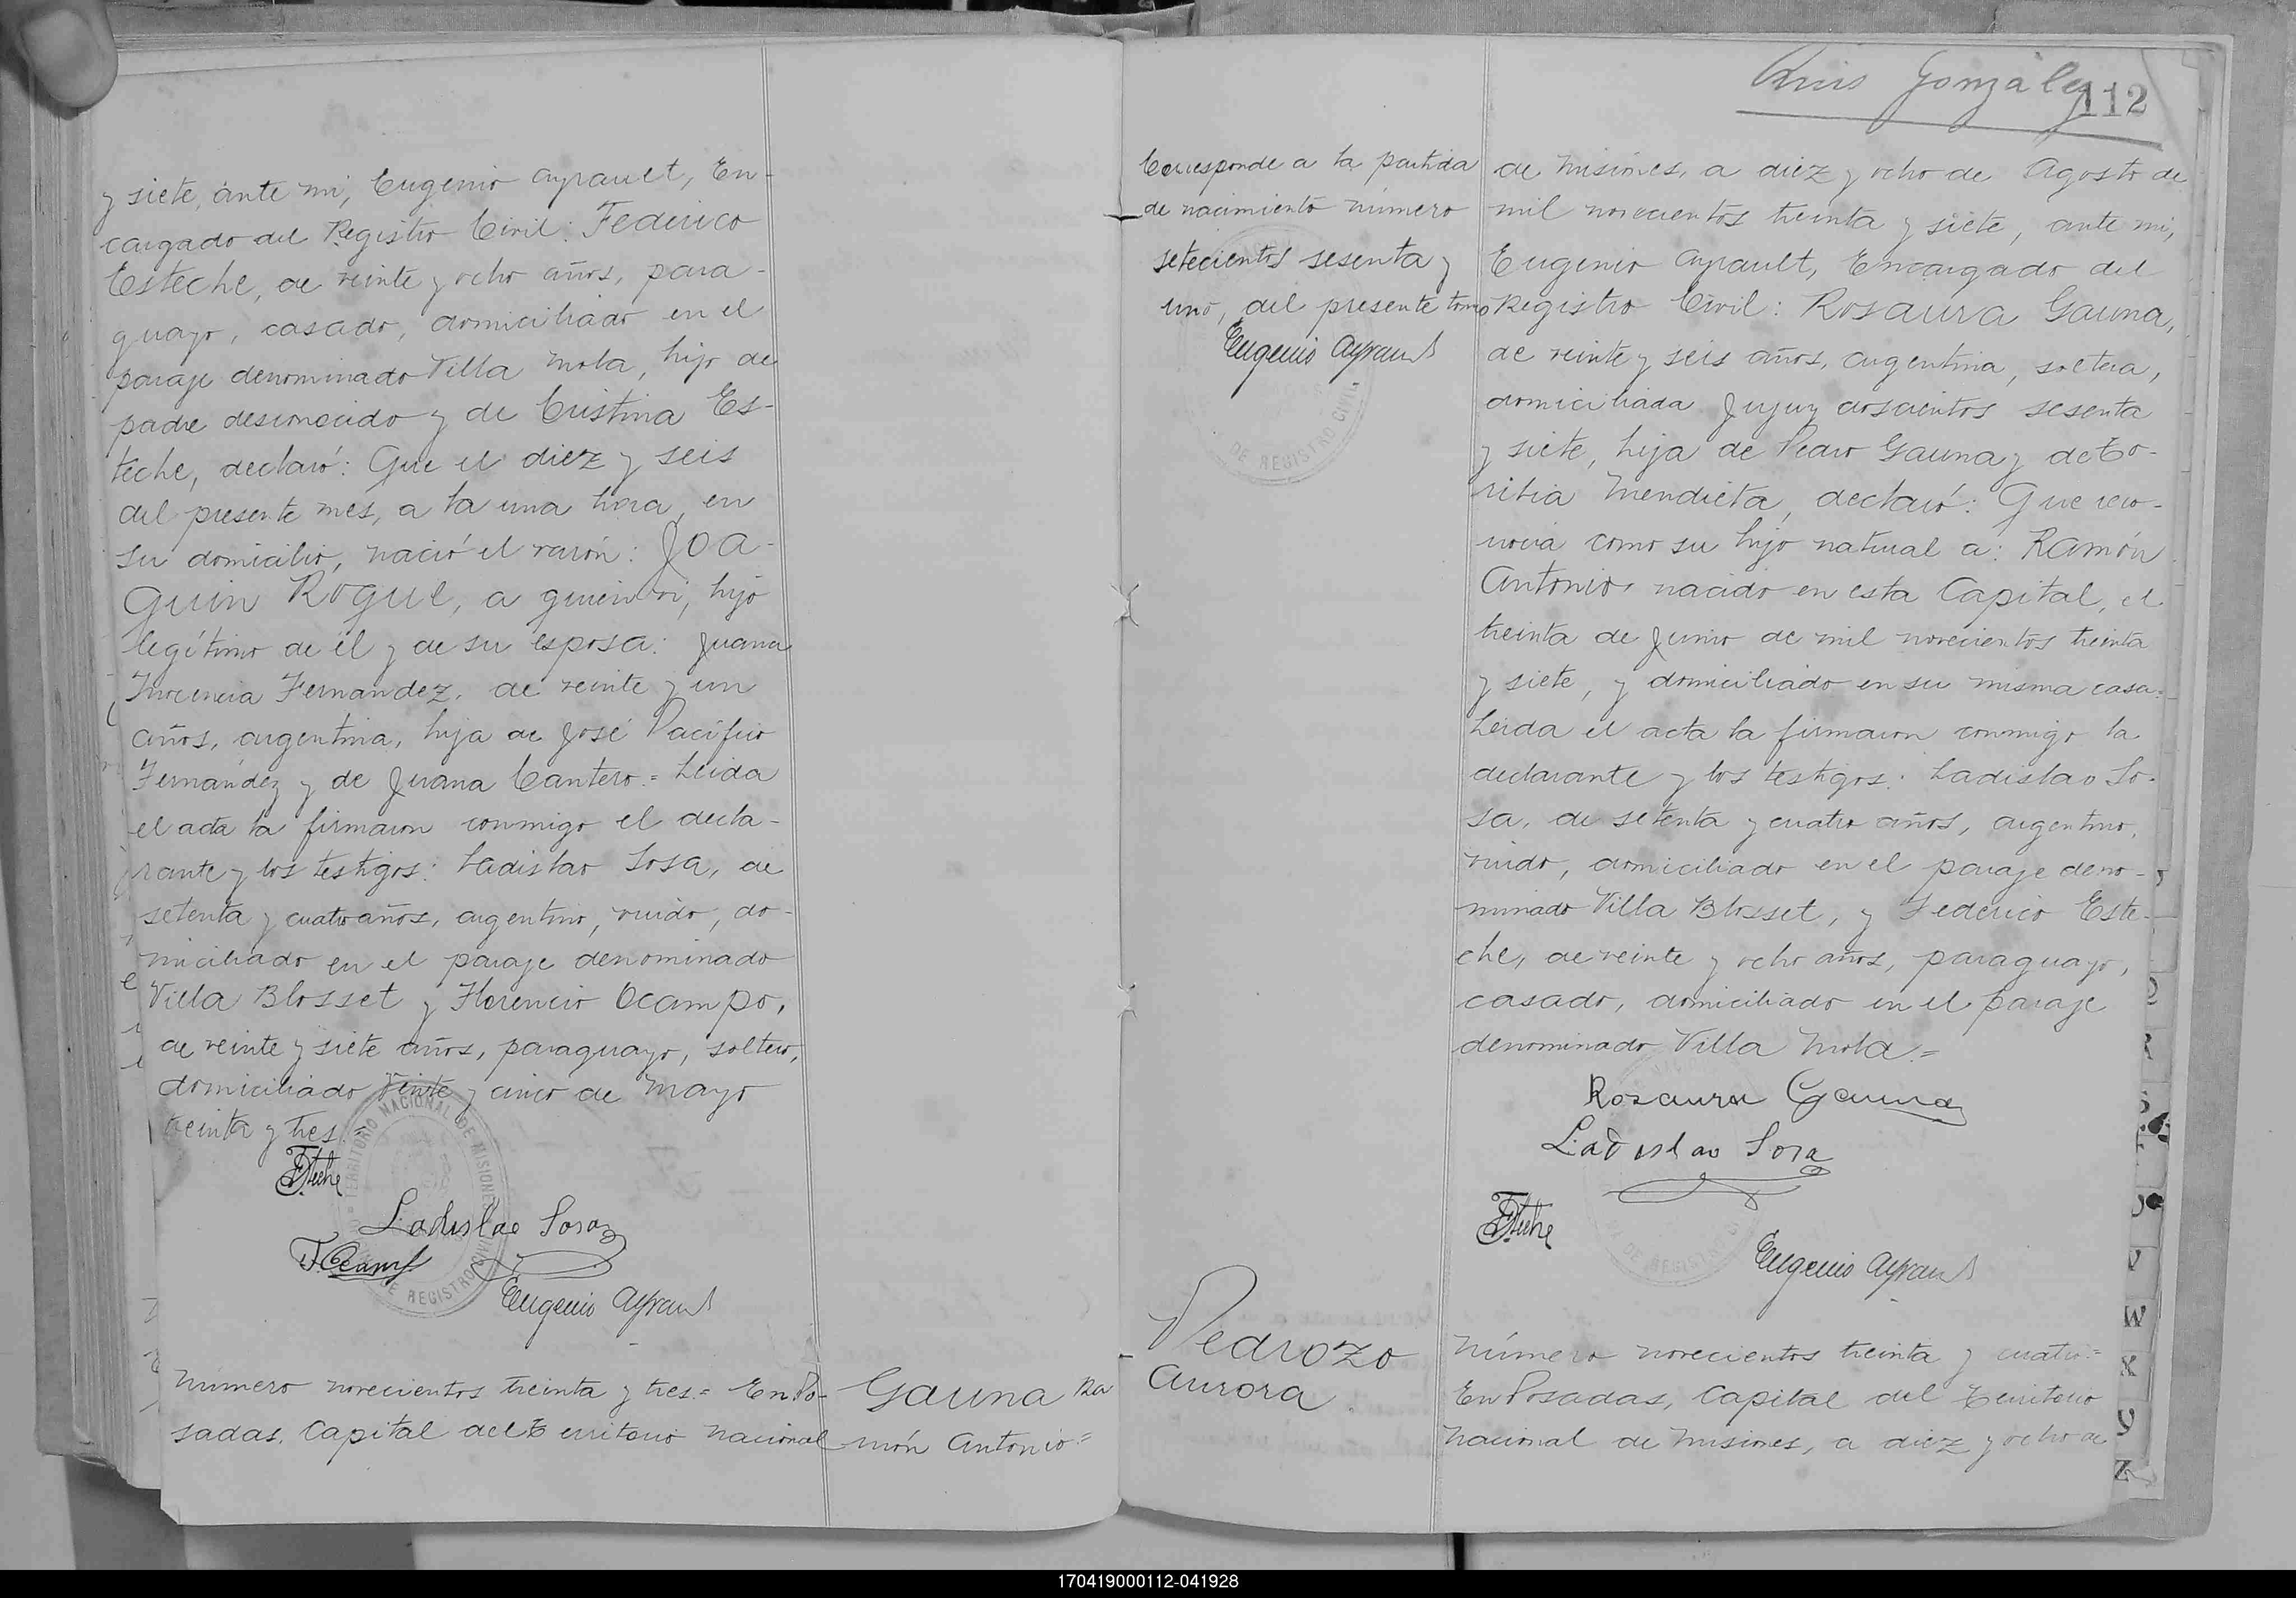 y siete, ante mi, Eugenio Ayrault, En-
cargado del Registro Civil: Federico
Esteche, de veinte y ocho años, para-
guayo, casado, domiciliado en el
paraje denominado Villa Mola, hijo de
padre desconocido y de Cristina Es-
teche, declaró: Que el diez y seis
del presente mes, a la una hora, en
su domicilio, nació el varón: Joa-
quin Roque, a quien vi, hijo
legítimo de él y de su esposa: Juana
Inocencia Fernandez, de veinte y un
años, argentina, hija de José Pacífico
Fernández y de Juana Cantero.= Leida
el acta la firmaron conmigo el decla-
rante y los testigos: Ladislao Sosa, de
setenta y cuatro años, argentino, viudo, do-
miciliado en el paraje denominado
Villa Blosset y Florencio Ocampo,
de veinte y siete años, paraguayo, soltero,
domiciliado Veinte y cinco de Mayo
treinta y tres.=
TERRITORIO NACIONAL DE MISIONES
DE REGISTRO CIVIL
Ladislao Sosa
F. Ocampo
Eugenio Ayrault
Número novecientos treinta y tres.= En Po-
sadas, Capital del Territorio Nacional
Gauna Ra
món Antonio=
González
112
Corresponde a la partida
de nacimiento número
setecientos sesenta y
uno, del presente tomo
Eugenio Ayrault
DE REGISTRO CIVIL
de Misiones, a diez y ocho de Agosto de
mil novecientos treinta y siete, ante mi,
Eugenio Ayrault, Encargado del
Registro Civil: Rosaura Gauna,
de veinte y seis años, argentina, soltera,
domiciliada Jujuy doscientos sesenta
y siete, hija de Pedro Gauna y de To-
ribia Mendieta, declaró: Que reco-
nocía como su hijo natural a: Ramón
Antonio, nacido en esta Capital, el
treinta de Junio de mil novecientos treinta
y siete, y domiciliado en su misma casa.=
Leida el acta la firmaron conmigo la
declarante y los testigos: Ladislao So-
sa, de setenta y cuatro años, argentino,
viudo, domiciliado en el paraje deno-
minado Villa Blosset, y Federico Este-
che, de veinte y ocho años, paraguayo,
casado, domiciliado en el paraje
denominado Villa Mola.=
Rosaura Gauna
Ladislao Sosa
DE REGISTRO
Eugenio Ayrault
Pedrozo
Aurora
Número novecientos treinta y cuatro.=
En Posadas, Capital del Territorio
Nacional de Misiones, a diez y ocho de
V
W
X
Y
Z
170419000112-041928